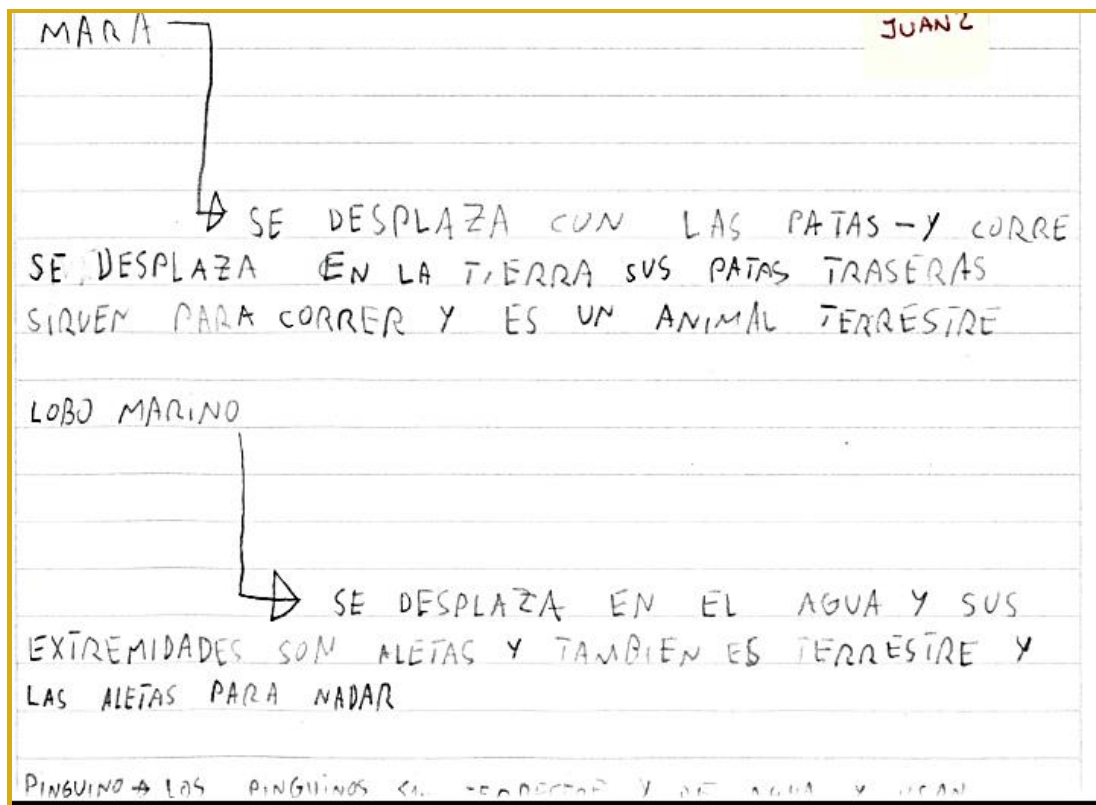 MARA
JUAN Z
SE DESPLAZA CON LAS PATAS - Y CORRE
SE DESPLAZA EN LA TIERRA SUS PATAS TRASERAS
SIRVEN PARA CORRER Y ES UN ANIMAL TERRESTRE
LOBO MARINO
SE DESPLAZA EN EL AGUA Y SUS
EXTREMIDADES SON ALETAS Y TAMBIEN ES TERRESTRE Y
LAS ALETAS PARA NADAR
PINGUINO LOS PINGUINOS Y DE AGUA Y